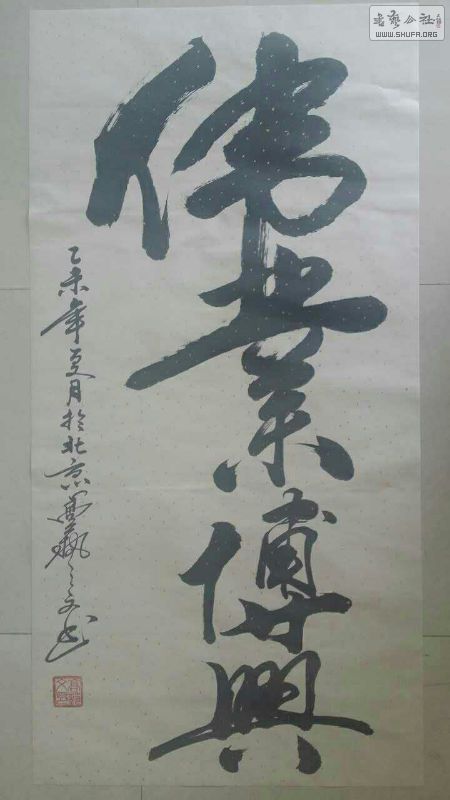 書藝公社
WWW.SHUFA.ORG
偉業博興
乙未年夏月於北京